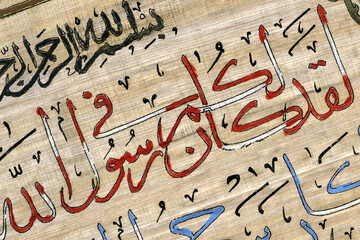 بسم الله الرحمن الرحيم
لقد كان لكم في رسول الله